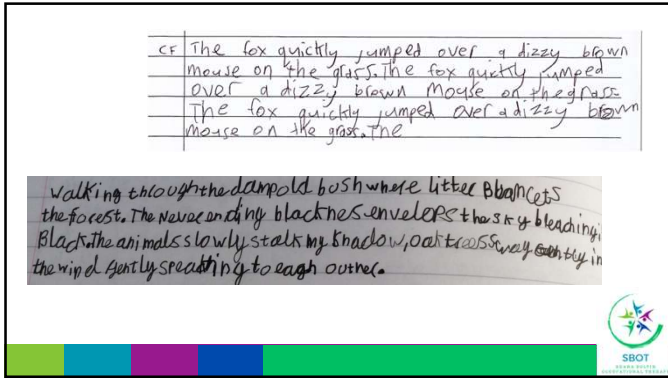 CF The fox quickly jumped over a dizzy brown
mouse on the grass. The fox quickly jumped
over a dizzy brown mouse on the grass
The fox quickly jumped over a dizzy brown
mouse on the grass. The
Walking throughthedampold bushwhere litter
theforest. The Neverending blacknes envelops thesky bleaching
Black.The animals slowly stalk my shadow, oaktrees sway in
thewind gently speaking to each outher.
SBOT